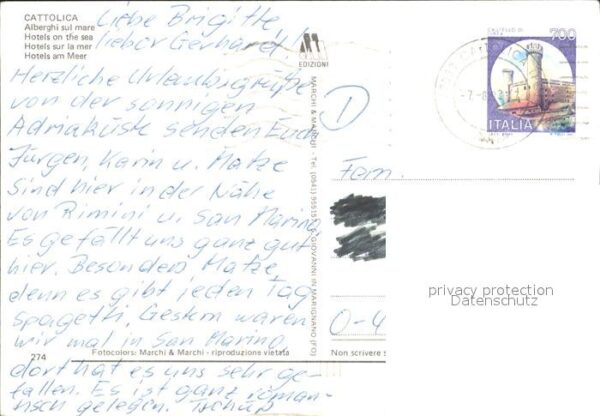 CATTOLICA
Alberghi sul mare
Hotels on the sea
Hotels sur la mer
Hotels am Meer
Liebe Brigitte
lieber Gerhard!
Herzliche Urlaubsgrüße
von der sonnigen
Adriaküste senden Euch
Jürgen, Karin u. Matze
Sind hier in der Nähe
von Rimini u. San Marino.
Es gefällt uns ganz gut
hier. Besonders Matze,
denn es gibt jeden Tag
Spagetti. Gestern waren
wir mal in San Marino,
dort hat es uns sehr ge-
fallen. Es ist ganz roman-
tisch gelegen. Tschüß
274
Fotocolors: Marchi & Marchi - riproduzione vietata
EDIZIONI
MARCHI & MARCHI - Tel. (0541) 955151 S. GIOVANNI IN MARIGNANO (FO)
D
700
ITALIA
Fam.
privacy protection
Datenschutz
O-4
Non scrivere s